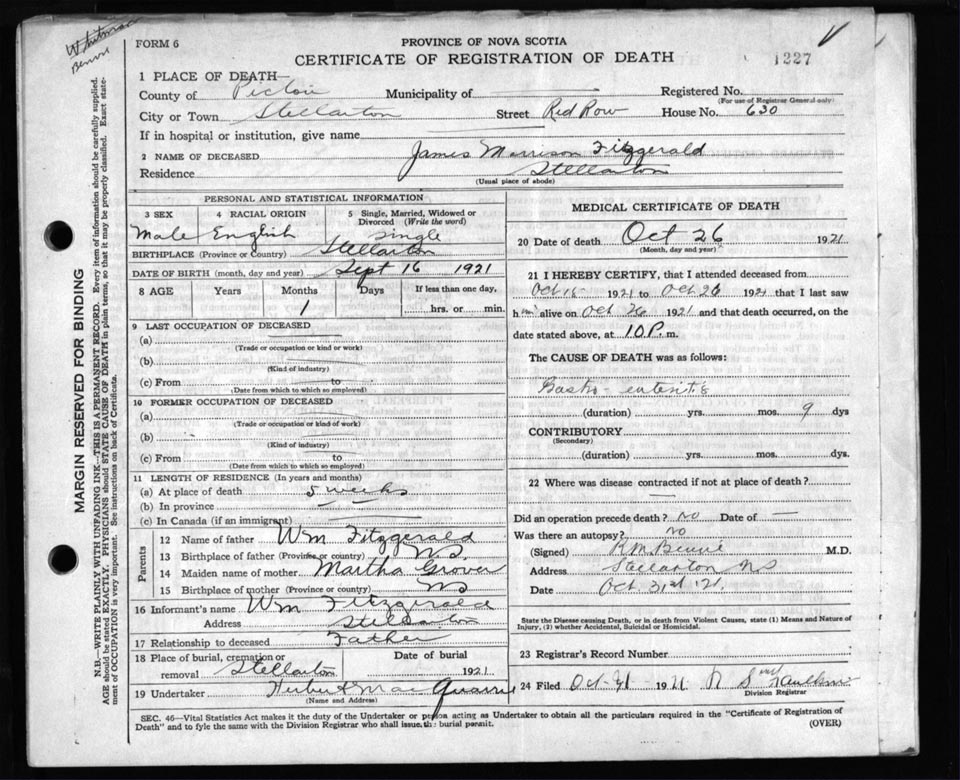 Whitman
FORM 6
PROVINCE OF NOVA SCOTIA
CERTIFICATE OF REGISTRATION OF DEATH
1227
1 PLACE OF DEATH—
County of Pictou Municipality of Registered No.
(For use of Registrar General only)
City or Town Stellarton Street Red Row House No. 630
If in hospital or institution, give name
2 NAME OF DECEASED James Morrison Fitzgerald
Residence Stellarton
(Usual place of abode)
PERSONAL AND STATISTICAL INFORMATION
3 SEX 4 RACIAL ORIGIN 5 Single, Married, Widowed or Divorced (Write the word)
Male English Single
BIRTHPLACE (Province or Country) Stellarton
DATE OF BIRTH (month, day and year) Sept 16 1921
8 AGE Years Months Days If less than one day,
1 hrs. or min.
9 LAST OCCUPATION OF DECEASED
(a)
(Trade or occupation or kind or work)
(b)
(Kind of industry)
(c) From to
(Date from which to which so employed)
10 FORMER OCCUPATION OF DECEASED
(a)
(Trade or occupation or kind of work)
(b)
(Kind of industry)
(c) From to
(Date from which to which so employed)
11 LENGTH OF RESIDENCE (In years and months)
(a) At place of death 5 weeks
(b) In province
(c) In Canada (if an immigrant)
Parents
12 Name of father Wm Fitzgerald
13 Birthplace of father (Province or country) NS
14 Maiden name of mother Martha Grover
15 Birthplace of mother (Province or country) NS
16 Informant's name Wm Fitzgerald
Address Stellarton
17 Relationship to deceased Father
18 Place of burial, cremation or removal Stellarton Date of burial 1921
19 Undertaker
(Name and Address)
MEDICAL CERTIFICATE OF DEATH
20 Date of death Oct 26 1921
(Month, day and year)
21 I HEREBY CERTIFY, that I attended deceased from
Oct 18 1921 to Oct 26 1921 that I last saw
him alive on Oct 26 1921 and that death occurred, on the
date stated above, at 10 P. m.
The CAUSE OF DEATH was as follows:
Gastro-enteritis
(duration) yrs. mos. 9 dys
CONTRIBUTORY
(Secondary)
(duration) yrs. mos. dys.
22 Where was disease contracted if not at place of death? —
Did an operation precede death? No Date of —
Was there an autopsy? No
(Signed) M.D.
Address Stellarton NS
Date Oct. 31st '21.
State the Disease causing Death, or in death from Violent Causes, state (1) Means and Nature of Injury, (2) whether Accidental, Suicidal or Homicidal.
23 Registrar's Record Number
24 Filed Oct 31 1921
Division Registrar
SEC. 46—Vital Statistics Act makes it the duty of the Undertaker or person acting as Undertaker to obtain all the particulars required in the "Certificate of Registration of
Death" and to fyle the same with the Division Registrar who shall issue the burial permit. (OVER)
MARGIN RESERVED FOR BINDING
N.B.—WRITE PLAINLY, WITH UNFADING INK—THIS IS A PERMANENT RECORD. Every item of information should be carefully supplied.
AGE should be stated EXACTLY. PHYSICIANS should STATE CAUSE OF DEATH in plain terms, so that it may be properly classified. Exact state-
ment of OCCUPATION is very important. See instructions on back of Certificate.